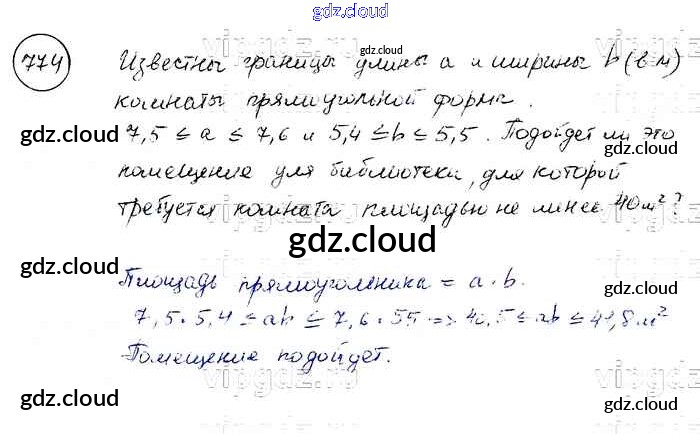 gdz.cloud
774 Известны границы длины a и ширины b (в м)
gdz.cloud
комнаты прямоугольной формы.
gdz.cloud gdz.cloud
7,5 ≤ a ≤ 7,6 и 5,4 ≤ b ≤ 5,5. Подойдет ли это
помещение для библиотеки, для которой
требуется комната площадью не менее 40 м²?
gdz.cloud
gdz.cloud
Площадь прямоугольника = a·b.
gdz.cloud
7,5·5,4 ≤ ab ≤ 7,6·55 => 40,5 ≤ ab ≤ 41,8 м²
Помещение подойдет.
gdz.cloud
gdz.cloud